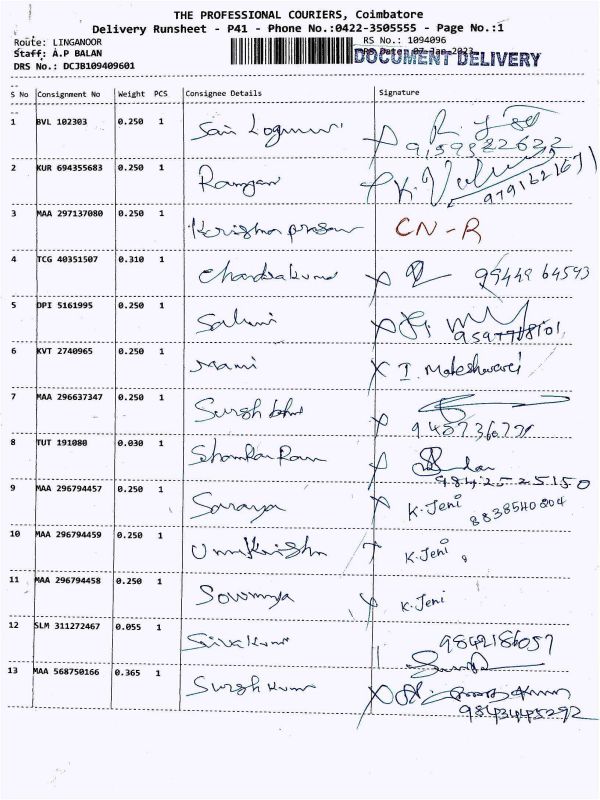 THE PROFESSIONAL COURIERS, Coimbatore
Delivery Runsheet - P41 - Phone No.:0422-3505555 - Page No.:1
Route: LINGANOOR RS No.: 1094096
Staff: A.P BALAN RS Date: 07-Jan-2023 DOCUMENT DELIVERY
DRS No.: DCJB109409601
S No Consignment No Weight PCS Consignee Details Signature
1 BVL 102303 0.250 1 Sai
2 KUR 694355683 0.250 1 Ramjan 9791621671
3 MAA 297137080 0.250 1 Krishna prasan CN-R
4 TCG 40351507 0.310 1 Chandrakumar 9944964593
5 DPI 5161995 0.250 1
6 KVT 2740965 0.250 1 Mani I. Maheshwari
7 MAA 296637347 0.250 1
8 TUT 191080 0.030 1 9842525150
9 MAA 296794457 0.250 1 Saranya K. Jeni 8838540804
10 MAA 296794459 0.250 1 Unnikrishn K. Jeni
11 MAA 296794458 0.250 1 Sowmya K. Jeni
12 SLM 311272467 0.055 1 Sivakumar 9842186057
13 MAA 568750166 0.365 1 Suresh Kumar